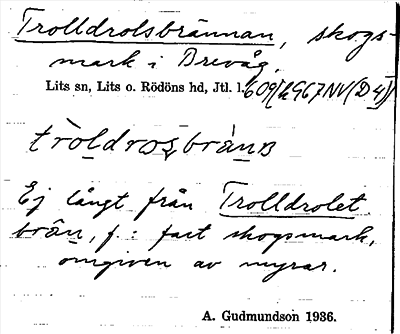 Trolldrolsbrännan, skogs-
mark i Brevåg,
Lits sn, Lits o. Rödöns hd, Jtl. l.
troldrosbränn
Ej långt från Trolldrolet
brän, f.: fast skogsmark,
omgiven av myrar.
A. Gudmundson 1936.